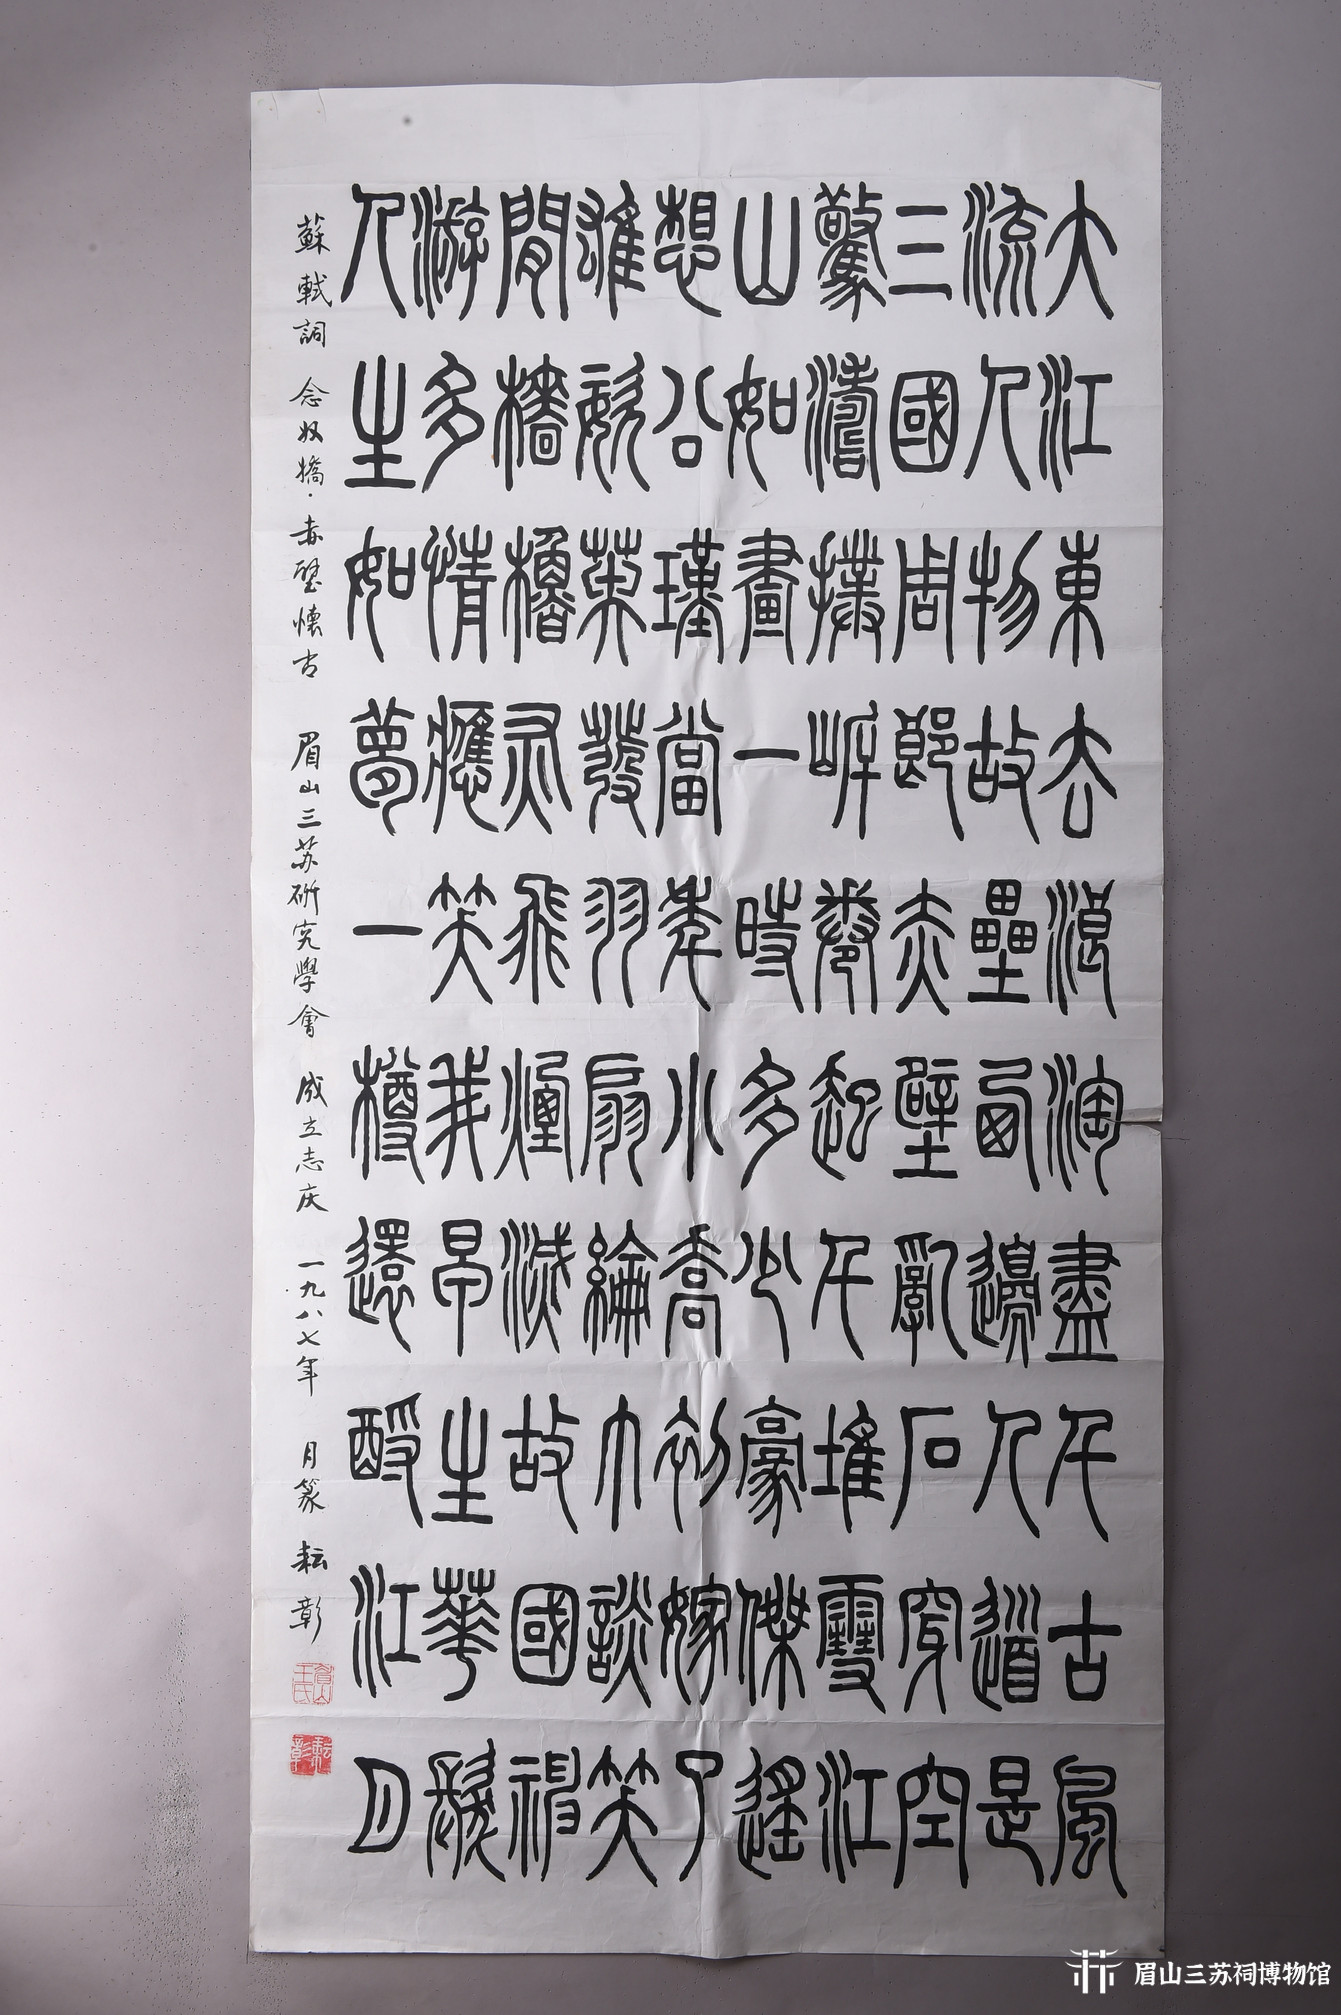 大江東去浪淘盡千古風
流人物故壘西邊人道是
三國周郎赤壁亂石穿空
驚濤撲岸卷起千堆雪江
山如畫一時多少豪傑遙
想公瑾當年小喬初嫁了
雄姿英發羽扇綸巾談笑
間檣櫓灰飛煙滅故國神
游多情應笑我早生華髮
人生如夢一樽還酹江月
蘇軾詞 念奴橋·赤壁懷古 眉山三苏研究學會 成立志庆 一九八七年 月篆 耘彰
眉山王氏
耘彰
眉山三苏祠博物馆